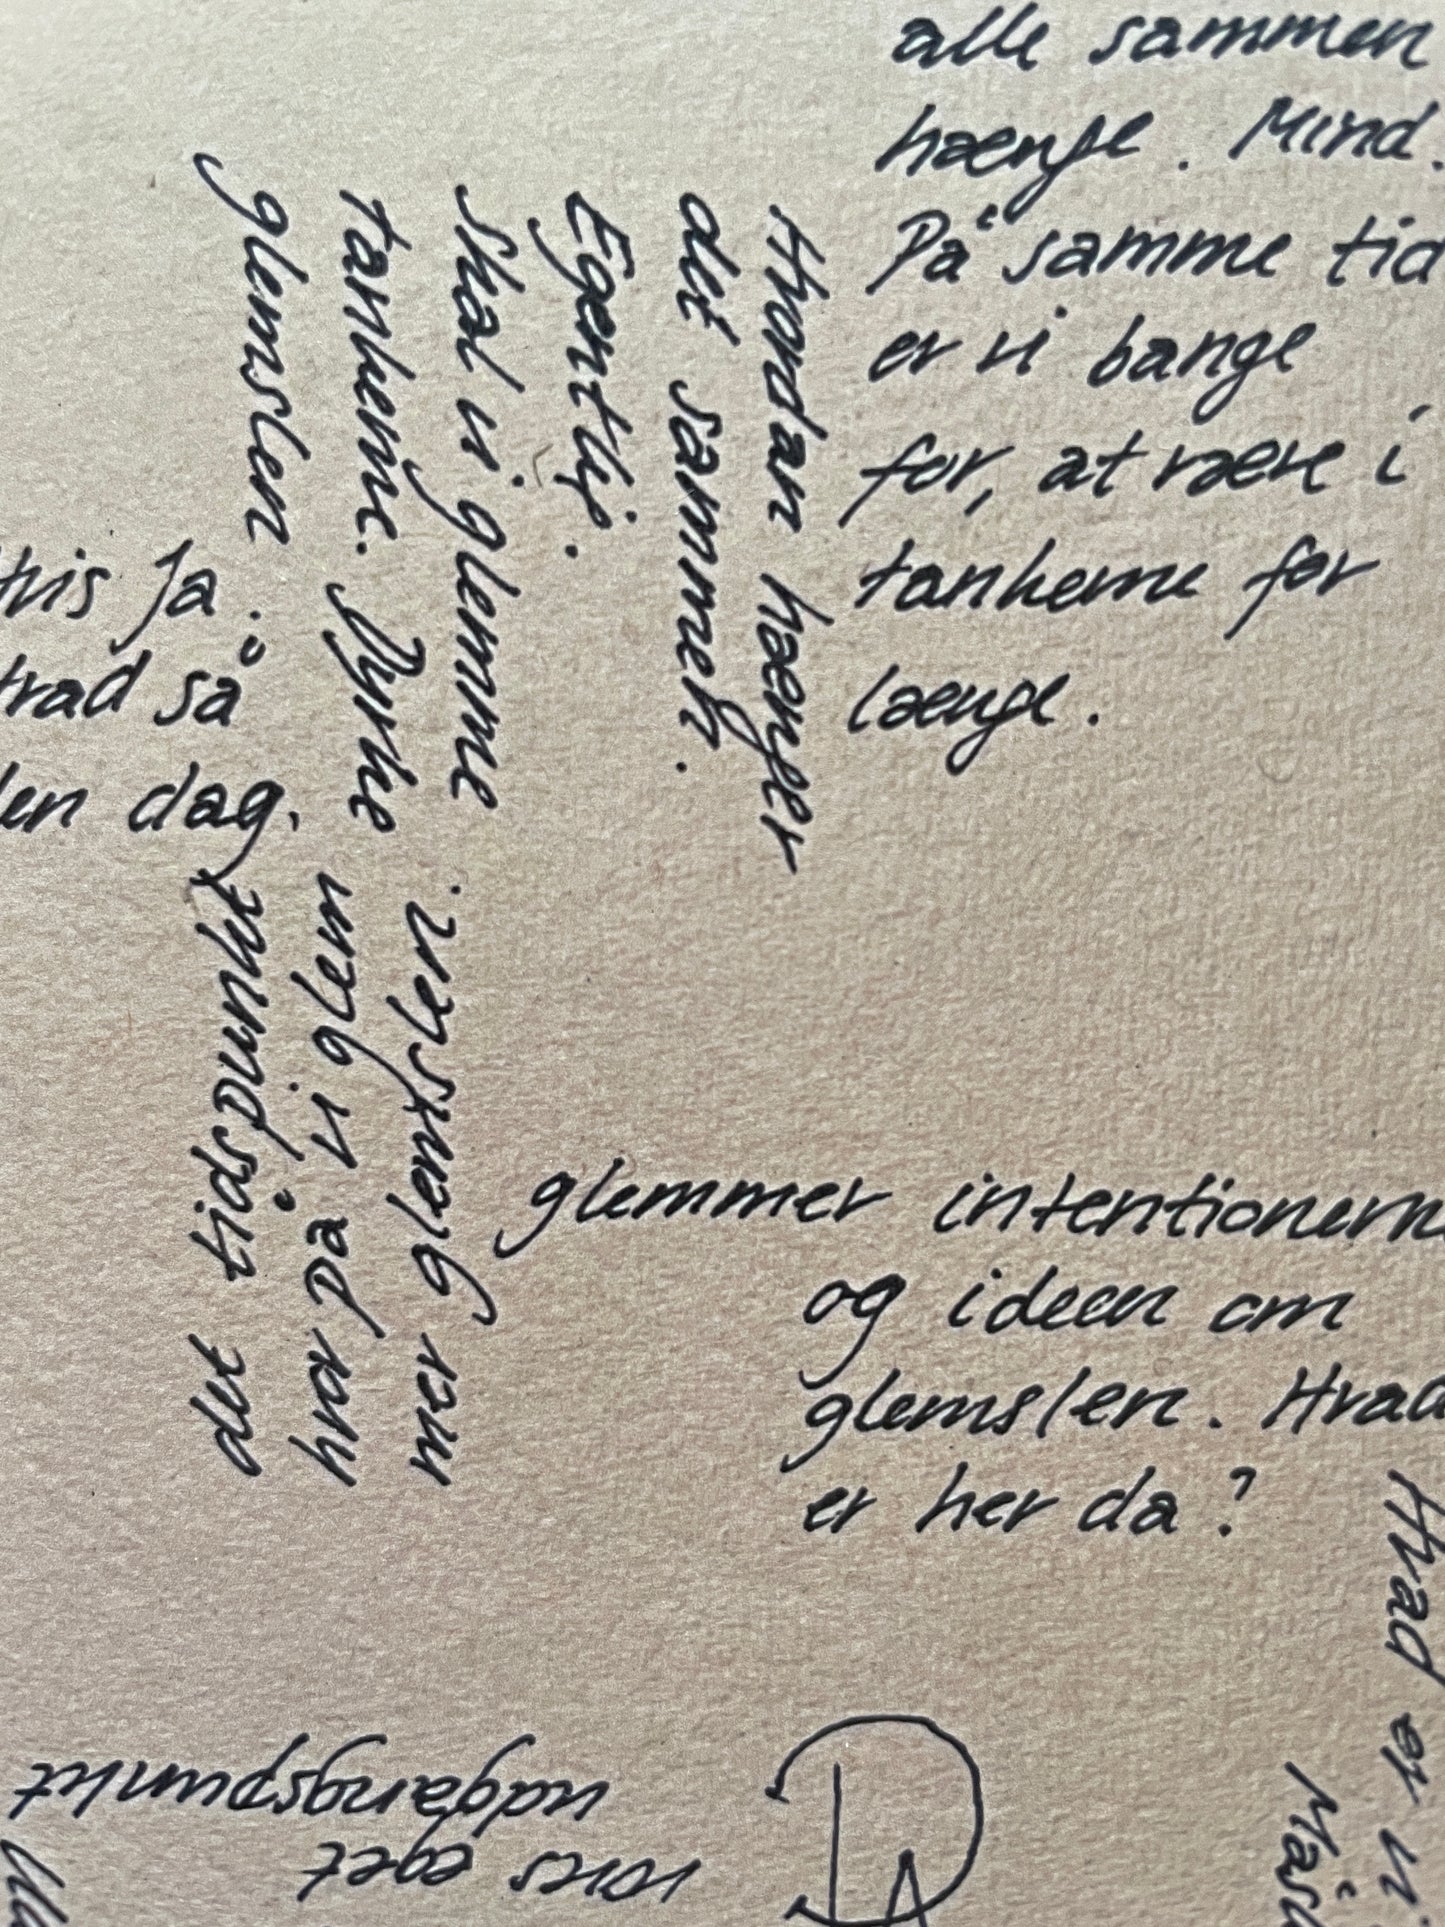 alle sammen
hænge. Mind.
På samme tid
er vi bange
for, at være i
tankerne for
længe.
Hvordan hænger
det sammen.
Egentlig.
skal vi glemme
tankerne. Dyrke
glemslen
ja.
så
dag,
det tidspunkt
hvor på vi glem
mer glemslen.
glemmer intentionerne
og ideen om
glemslen. Hvad
er her da?
Hvad er vi
vores eget
udgangspunkt